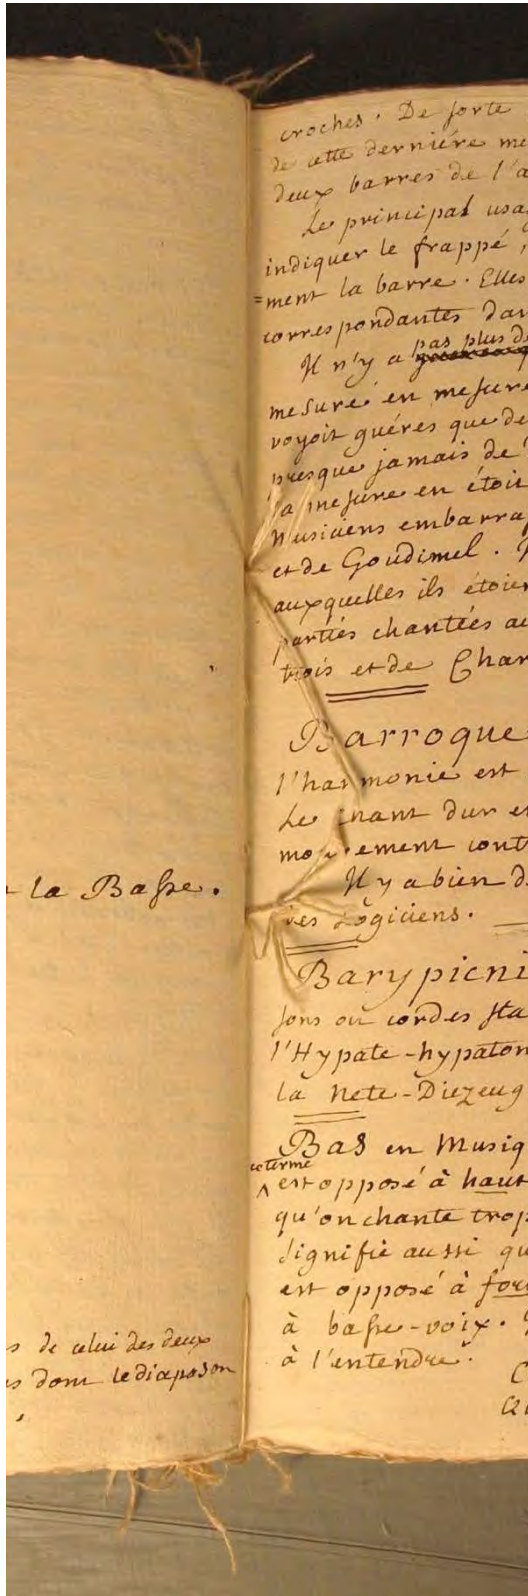 la Basse.
de celui des deux
dont le diapason
croches. De sorte
de cette derniére me
deux barres de l'a
Le principal usa
indiquer le frappé,
=ment la barre. Elles
correspondantes dan
Il n'y a pas plus de
mesuré en mesure
voyoit guéres que de
presque jamais de
la mesure en étoit
Musiciens embarras
et de Goudimel.
auxquelles ils étoien
parties chantées au
trois et de Char
Barroque
l'harmonie est
Le chant dur et
mouvement cont
Il y a bien d
des Logiciens.
Barypicni
sons ou cordes sta
l'Hypate-hypaton
la Nete-Diezeug
Bas en Musiq
ce terme
est opposé à haut
qu'on chante trop
signifie aussi qu
est opposé à for
à basse-voix.
à l'entendre.